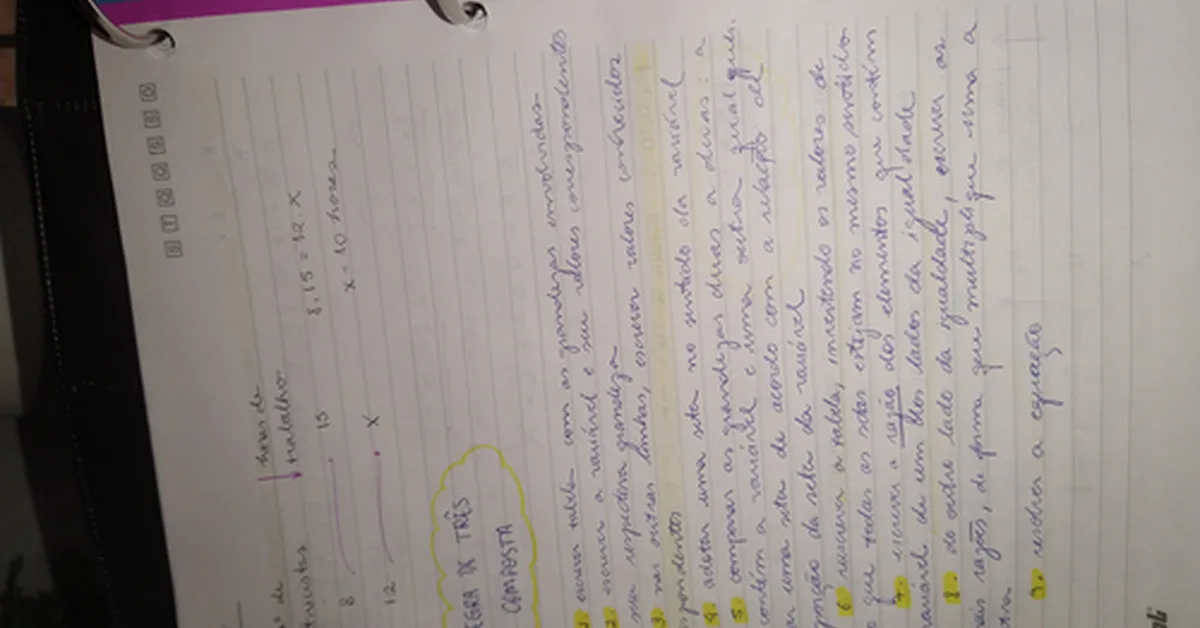 S T Q Q S S D
horas de
tricistas trabalho
8 15 8.15 = 12.X
12 X x = 10 horas
EGRA DE TRÊS
COMPOSTA
1. escrever tabela com as grandezas envolvidas
2. escrever a variável e seus valores correspondentes
sua respectiva grandeza
3. nas outras linhas, escrever valores conhecidos
spondentes
4. adotar uma seta no sentido da variável
5. comparar as grandezas duas a duas: a
contém a variável e uma outra qual quer.
ar uma seta de acordo com a relação de
porção da seta da variável
6. reescrever a tabela, invertendo os valores de
o que todas as setas estejam no mesmo sentido
7. escrever a razão dos elementos que contém
variável de um dos lados da igualdade
8. do outro lado da igualdade, escrever as
ais razões, de forma que multiplique uma a
tra
9. resolver a equação